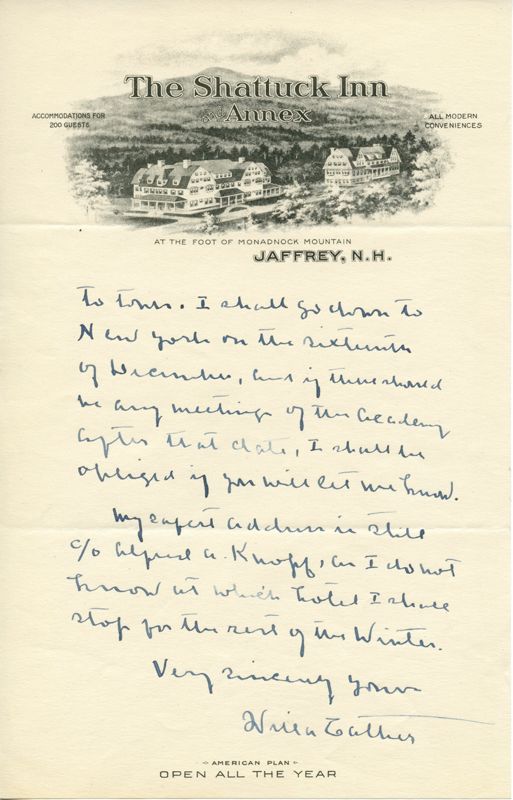 The Shattuck Inn
and Annex
ACCOMMODATIONS FOR
200 GUESTS
ALL MODERN
CONVENIENCES
AT THE FOOT OF MONADNOCK MOUNTAIN
JAFFREY, N.H.
to town. I shall go down to
New York on the sixteenth
of December, and if there should
be any meetings of the Academy
after that date, I shall be
obliged if you will let me know.
My safest address is still
c/o Alfred A. Knopf, as I do not
know at which hotel I shall
stop for the rest of the Winter.
Very sincerely yours
Willa Cather
AMERICAN PLAN
OPEN ALL THE YEAR